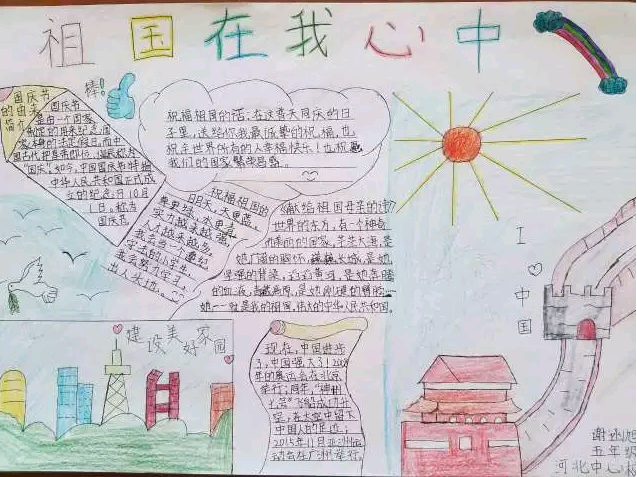 祖国在我心中
国庆节
的由来
简介
棒!
国庆节
是由一个国家
制定的用来纪念国
家本身的法定假日,而中
国古代把皇帝即位、诞辰称为
"国庆"。如今,中国国庆节特指
中华人民共和国正式成
立的纪念日10月
1日。称为
国庆节
祝福祖国的话:在这普天同庆的日
子里,送给你我最诚挚的祝福,也
祝全世界所有的人幸福快乐!也祝愿
我们的国家繁荣昌盛。
祝福祖国的
明天,天更蓝,
草更绿,水更清,
实力越来越强,
人才越来越多,
我会当一个跨世纪
我会努力学习,
出人头地。
《献给祖国母亲的诗》
世界的东方,有一个神奇
而美丽的国家,茫茫大海,是
她广阔的胸怀,长城,是她
坚强的脊梁,滔滔黄河,是她奔腾
的血液,
她——就是我的祖国,伟大的中华人民共和国。
I
中
国
建设美好家园
现在,中国进步
了,中国强大了!2008
年的奥运会在北京
举行;同年,"神州
七号"飞船成功升
空,在太空中留下
中国人的足迹;
2015年11月亚洲运
动会在广州举行。
谢
五年级
河北中心校